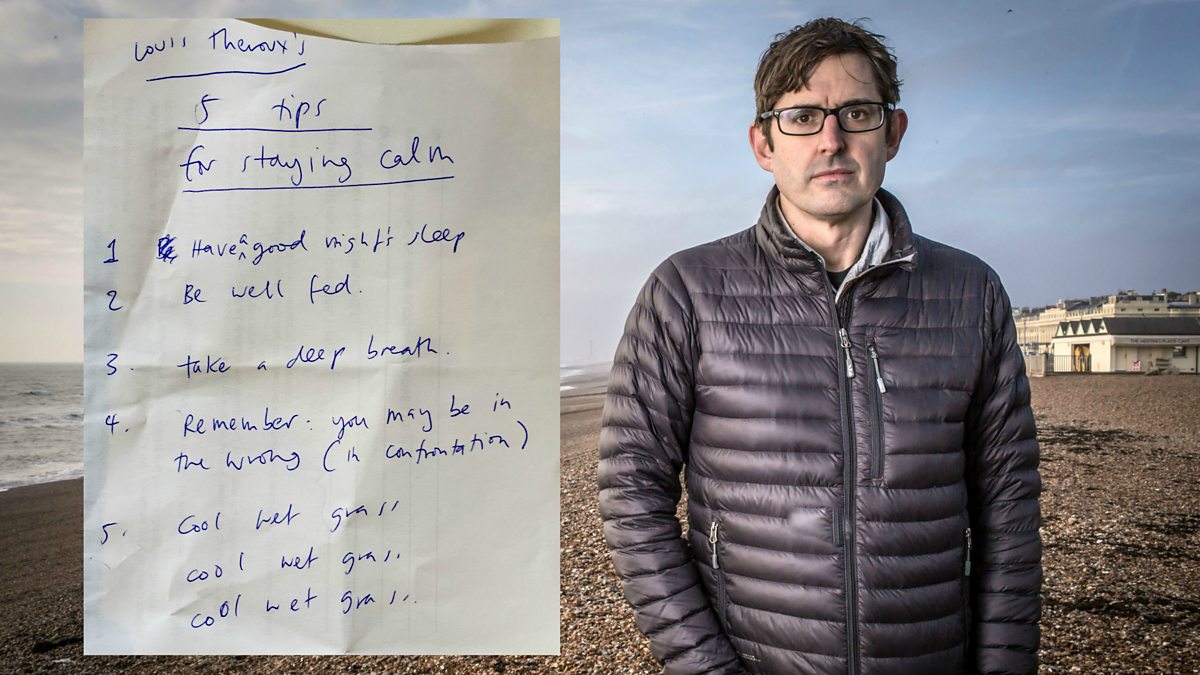 Louis Theroux's
5 tips
for staying calm
1 Have a good night's sleep
2 Be well fed.
3. take a deep breath.
4. Remember: you may be in
the wrong (in confrontation)
5. Cool wet grass
cool wet grass.
cool wet grass.
THE MEETING PLACE CAFE